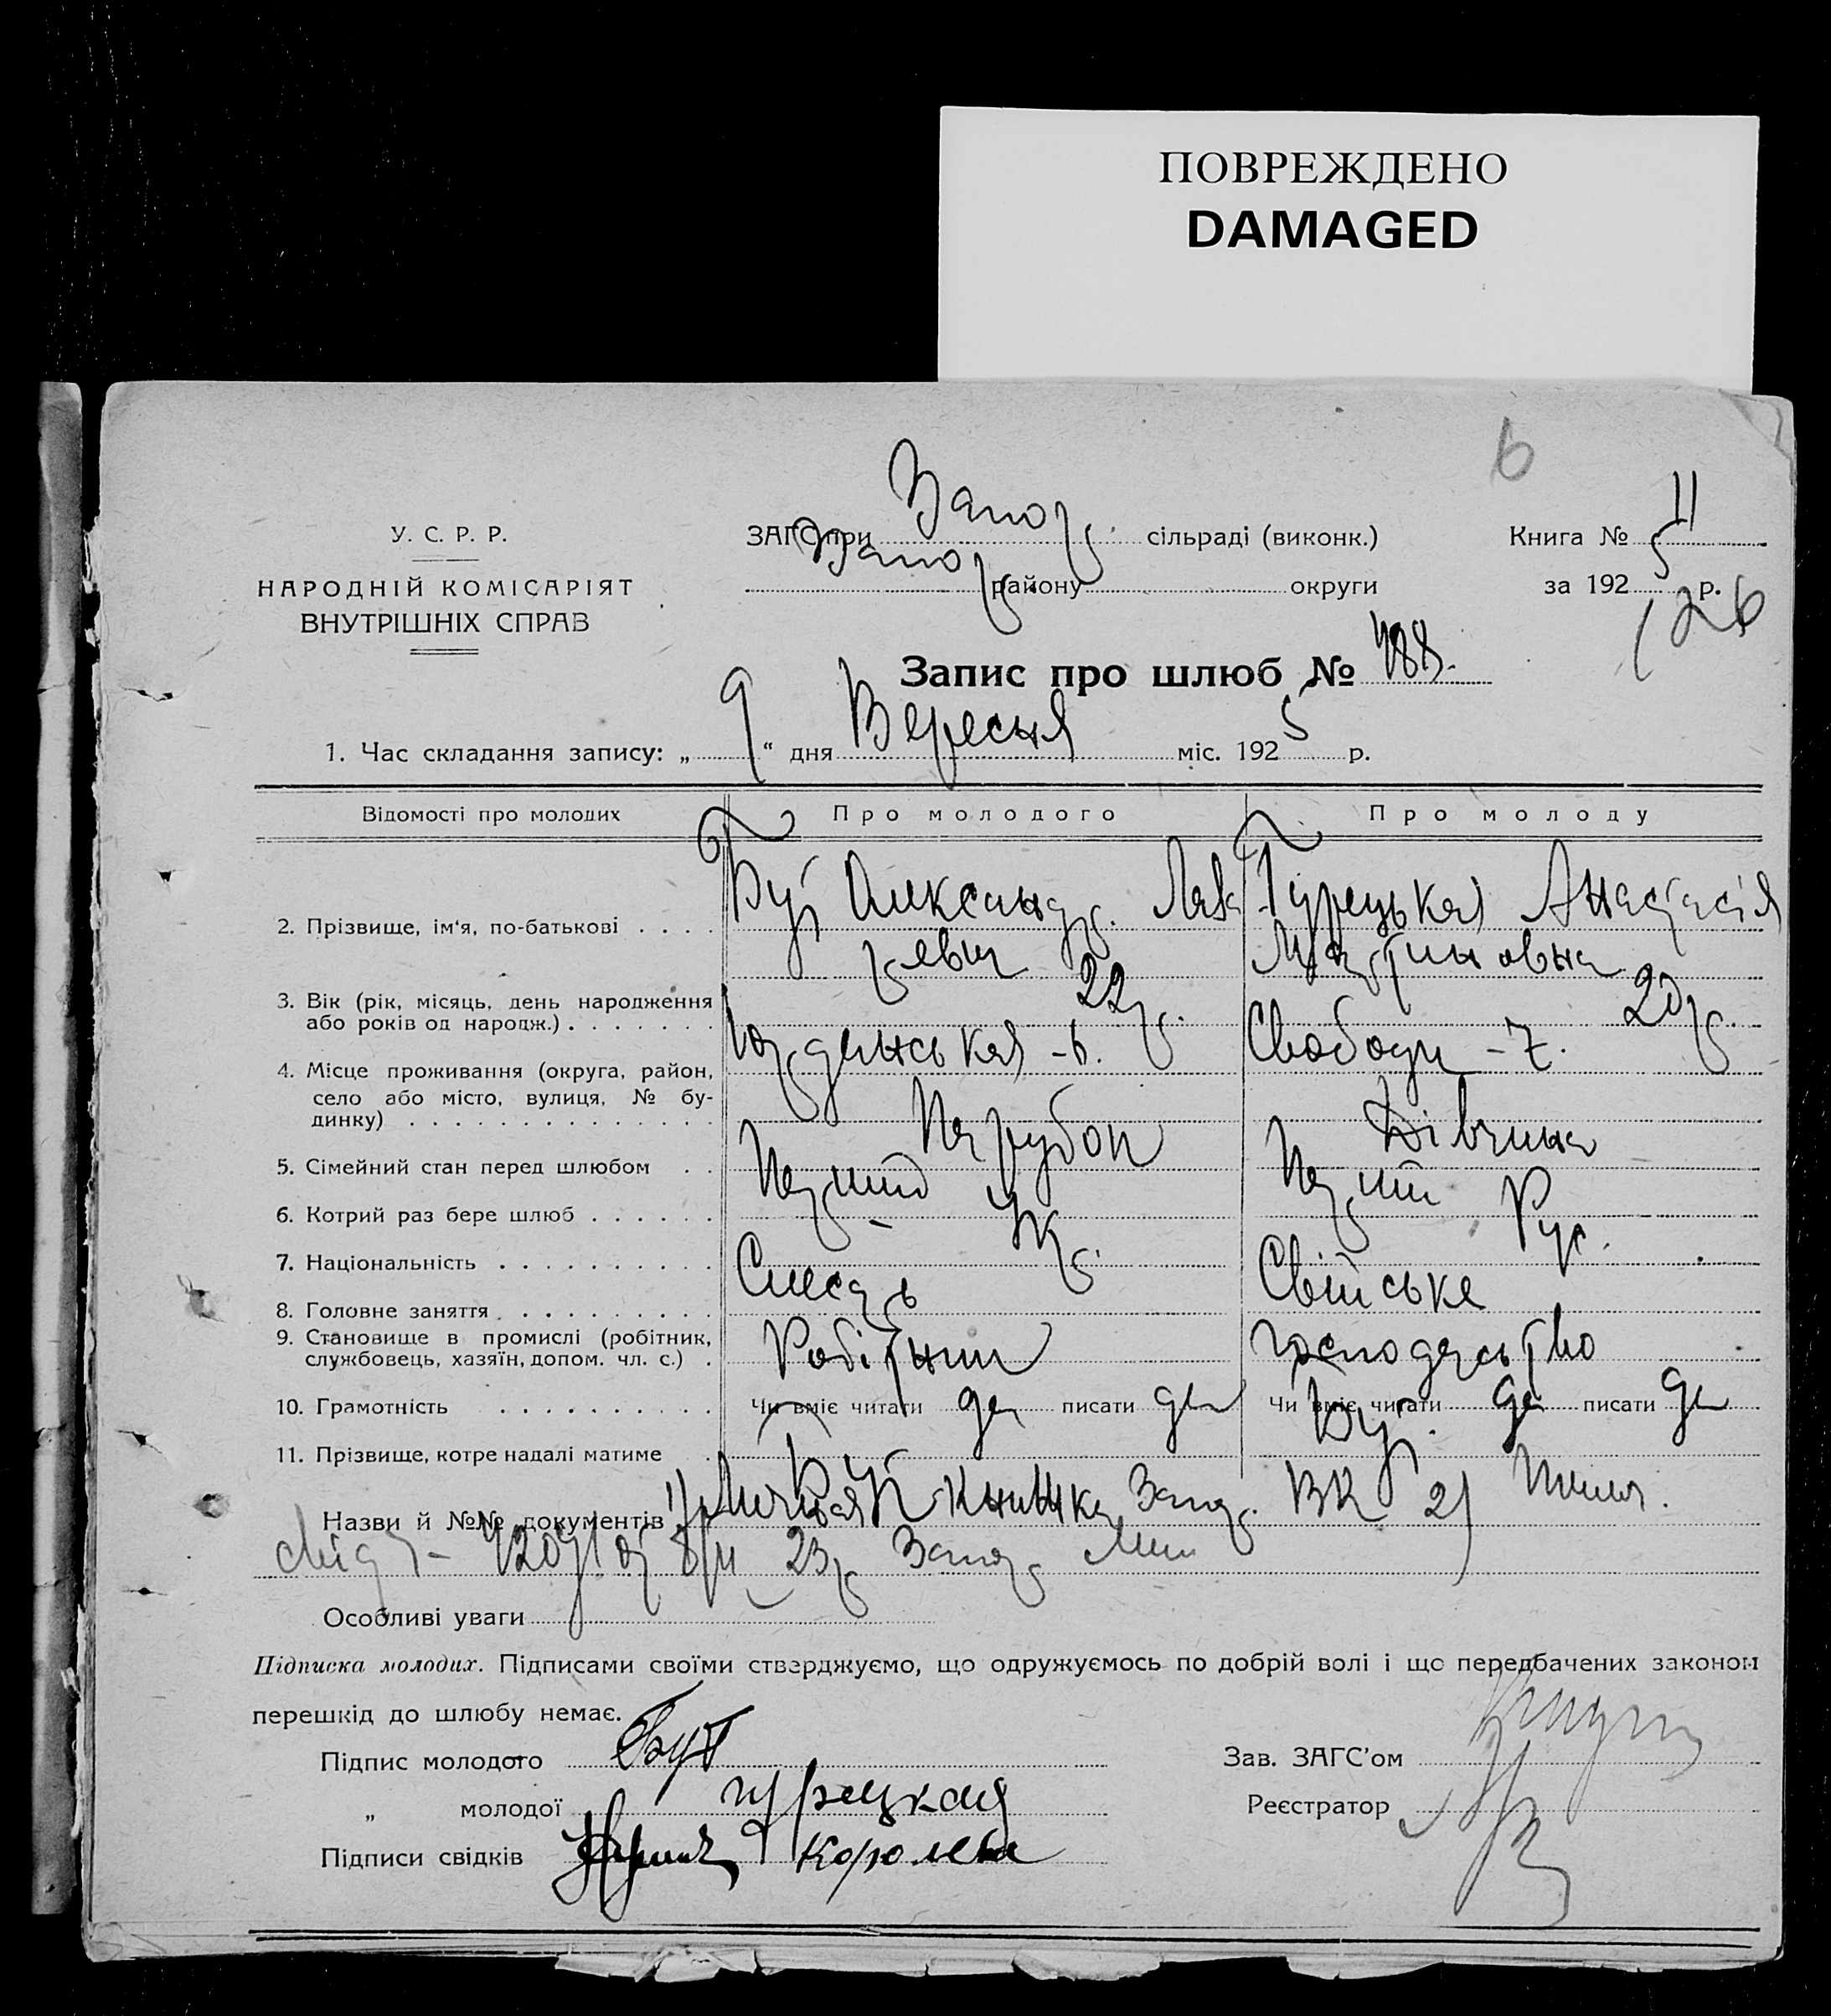 ПОВРЕЖДЕНО
DAMAGED
6
У. С. Р. Р.
НАРОДНІЙ КОМІСАРІЯТ
ВНУТРІШНІХ СПРАВ
ЗАГС при Запор. сільраді (виконк.)
Запор. району округи
Книга № 11
за 1925 р.
126
Запис про шлюб № 488.
1. Час складання запису: „9“ дня Вересня міс. 1925 р.
Відомості про молодих Про молодого Про молоду
2. Прізвище, ім'я, по-батькові . . . . Бут Олександр. Гурецькая Анастасія
Мартиновна
3. Вік (рік, місяць, день народження
або років од народж.) . . . . . . . 22 р. 20 р.
4. Місце проживання (округа, район,
село або місто, вулиця, № бу-
динку) . . . . . . . . . . . . . . . -6. Свободи - 7.
5. Сімейний стан перед шлюбом . . Парубок Дівчина
6. Котрий раз бере шлюб . . . . . . Перший Перший
7. Національність . . . . . . . . . . Укр. Рус.
8. Головне заняття . . . . . . . . . . Слесарь Свійське
9. Становище в промислі (робітник,
службовець, хазяїн, допом. чл. с.) . Робітник господарство
10. Грамотність . . . . . . . . . . Чи вміє читати да писати да Чи вміє читати да писати да
11. Прізвище, котре надалі матиме . Бут Бут.
Назви й №№ документів 1) Личная книжка Запор. ВК 2)
от 23 р. Запор.
Особливі уваги
Підписка молодих. Підписами своїми стверджуємо, що одружуємось по добрій волі і що передбачених законом
перешкід до шлюбу немає.
Підпис молодого Бут
Зав. ЗАГС'ом
„ молодої Гурецкая
Реєстратор
Підписи свідків Королева